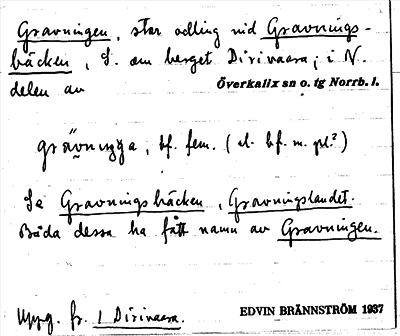 Gravningen, stor odling vid Gravnings-
bäcken, S. om berget Dirivaara, i N.
delen av Överkalix sn o. tg Norrb. l.
grävnıŋga, bf. fem. (el. bf. m. pl.?)
Se Gravningsbäcken, Gravningslandet.
Båda dessa ha fått namn av Gravningen.
Uppg. fr. 1 Dirivaara. EDVIN BRÄNNSTRÖM 1937